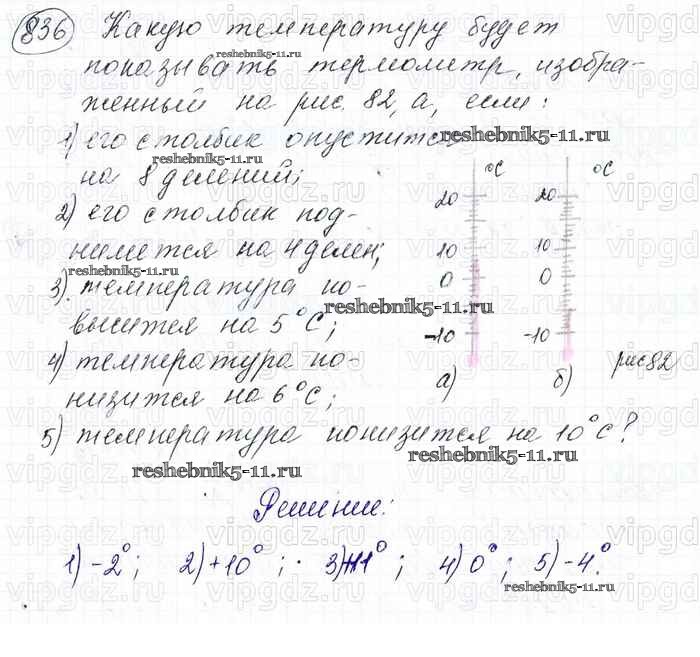 836 Какую температуру будет
показывать термометр, изобра-
женный на рис. 82, а, если:
1) его столбик опустится
на 8 делений;
2) его столбик под-
нимется на 4 делен;
3) температура по-
высится на 5°С;
4) температура по-
низится на 6°С;
5) температура понизится на 10°С?
°С °С
20 20
10 10
0 0
-10 -10
а) б) рис 82
Решение:
1) -2°; 2) +10°; 3) +11°; 4) 0°; 5) -4°.
reshebnik5-11.ru
reshebnik5-11.ru
reshebnik5-11.ru
reshebnik5-11.ru
reshebnik5-11.ru
reshebnik5-11.ru
reshebnik5-11.ru